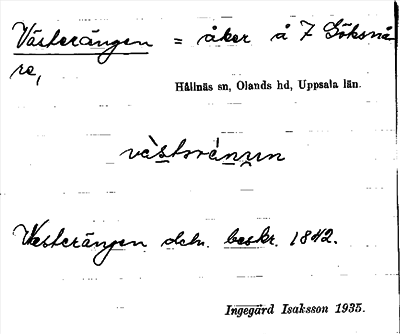 Västerängen = åker å 7 Göksnå-
re,
Hållnäs sn, Olands hd, Uppsala län.
Westerängen och. beskr. 1842.
Ingegärd Isaksson 1935.